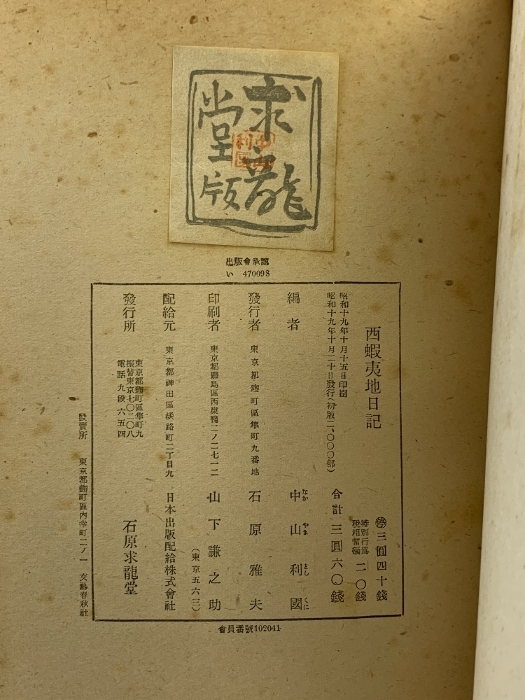 求龍
堂版
出版會承認
い 470098
西蝦夷地日記
賣三圓四十錢
特別行爲税相當額 二〇錢
合計 三圓六〇錢
昭和十九年十月十五日印刷
昭和十九年十月二十日發行(初版二、〇〇〇部)
編者 中山利國
なか やま とし くに
發行者 東京都麴町區隼町九番地 石原雅夫
印刷者 東京都豐島區西巢鴨二ノ二七一二 山下謙之助
(東京五六三)
配給元 東京都神田區淡路町二丁目九 日本出版配給株式會社
發行所 東京都麴町區隼町九 石原求龍堂
振替東京七〇二〇八
電話 九段 六五四
發賣所 東京都麴町區內幸町二ノ一 文藝春秋社
會員番號102041